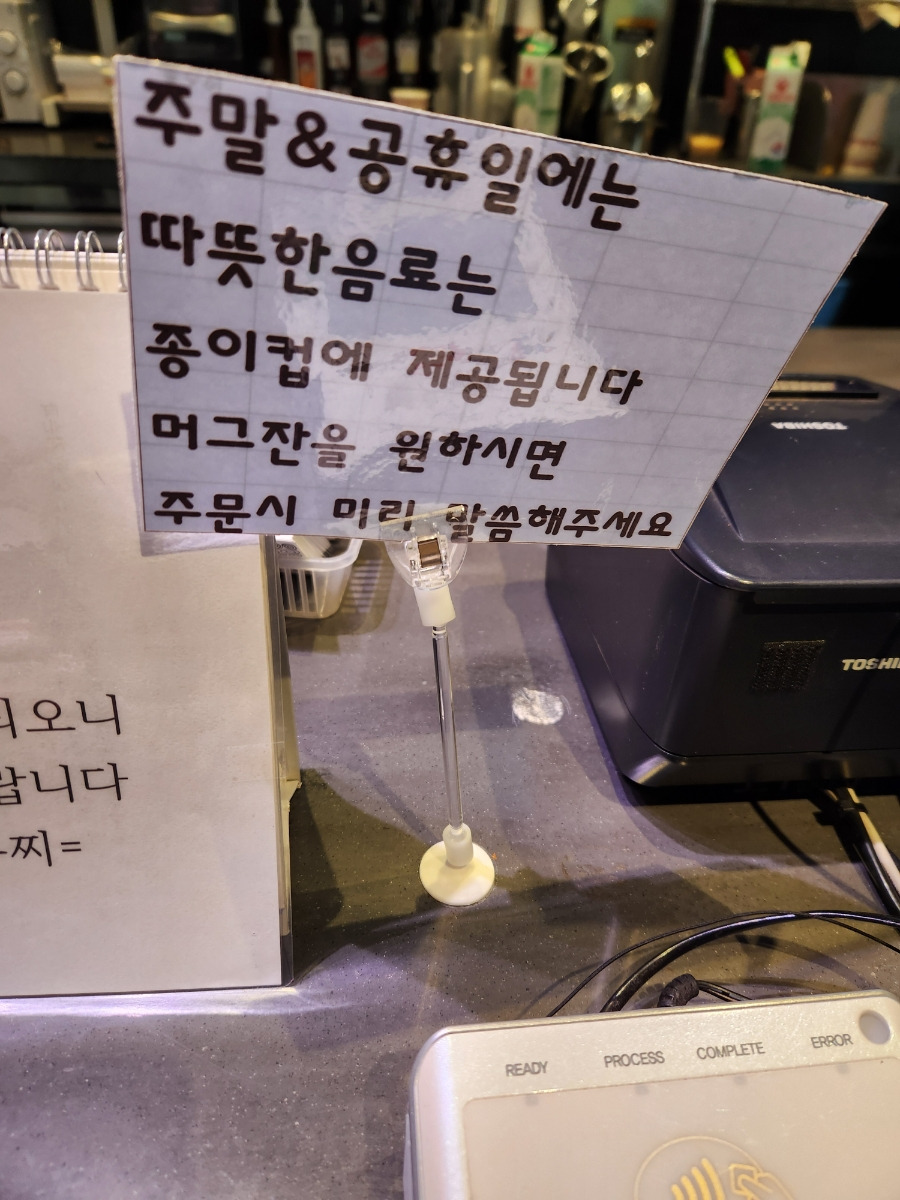 주말&공휴일에는
따뜻한음료는
종이컵에 제공됩니다
머그잔을 원하시면
주문시 미리 말씀해주세요
오니
니다
찌=
TOSHIBA
TOSHI
READY PROCESS COMPLETE ERROR